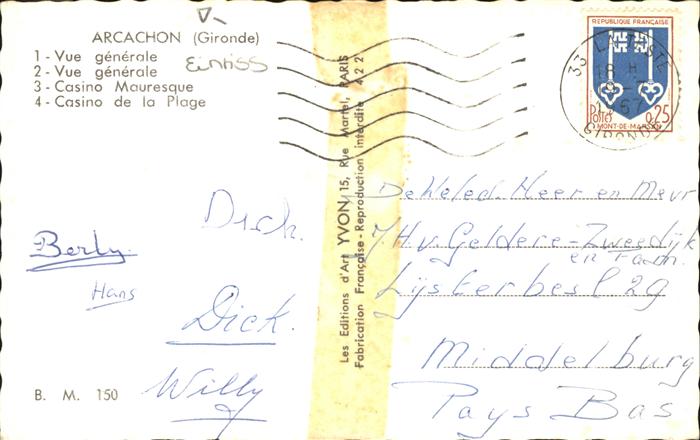 ARCACHON (Gironde)
1 - Vue générale
2 - Vue générale
3 - Casino Mauresque
4 - Casino de la Plage
Dick.
Berly.
Hans
Dick.
Willy
B. M. 150
Les Editions d'Art YVON, 15, Rue Martel, PARIS
Fabrication Française - Reproduction interdite
REPUBLIQUE FRANÇAISE
Postes 0,25
MONT-DE-MARSAN
33 LA TESTE
18 H
GIRONDE
De Weled. Heer en Mevr
J.H.v. Geldere-Zweedijk
en Fam.
Lijsterbesl 29
Middelburg
Pays Bas